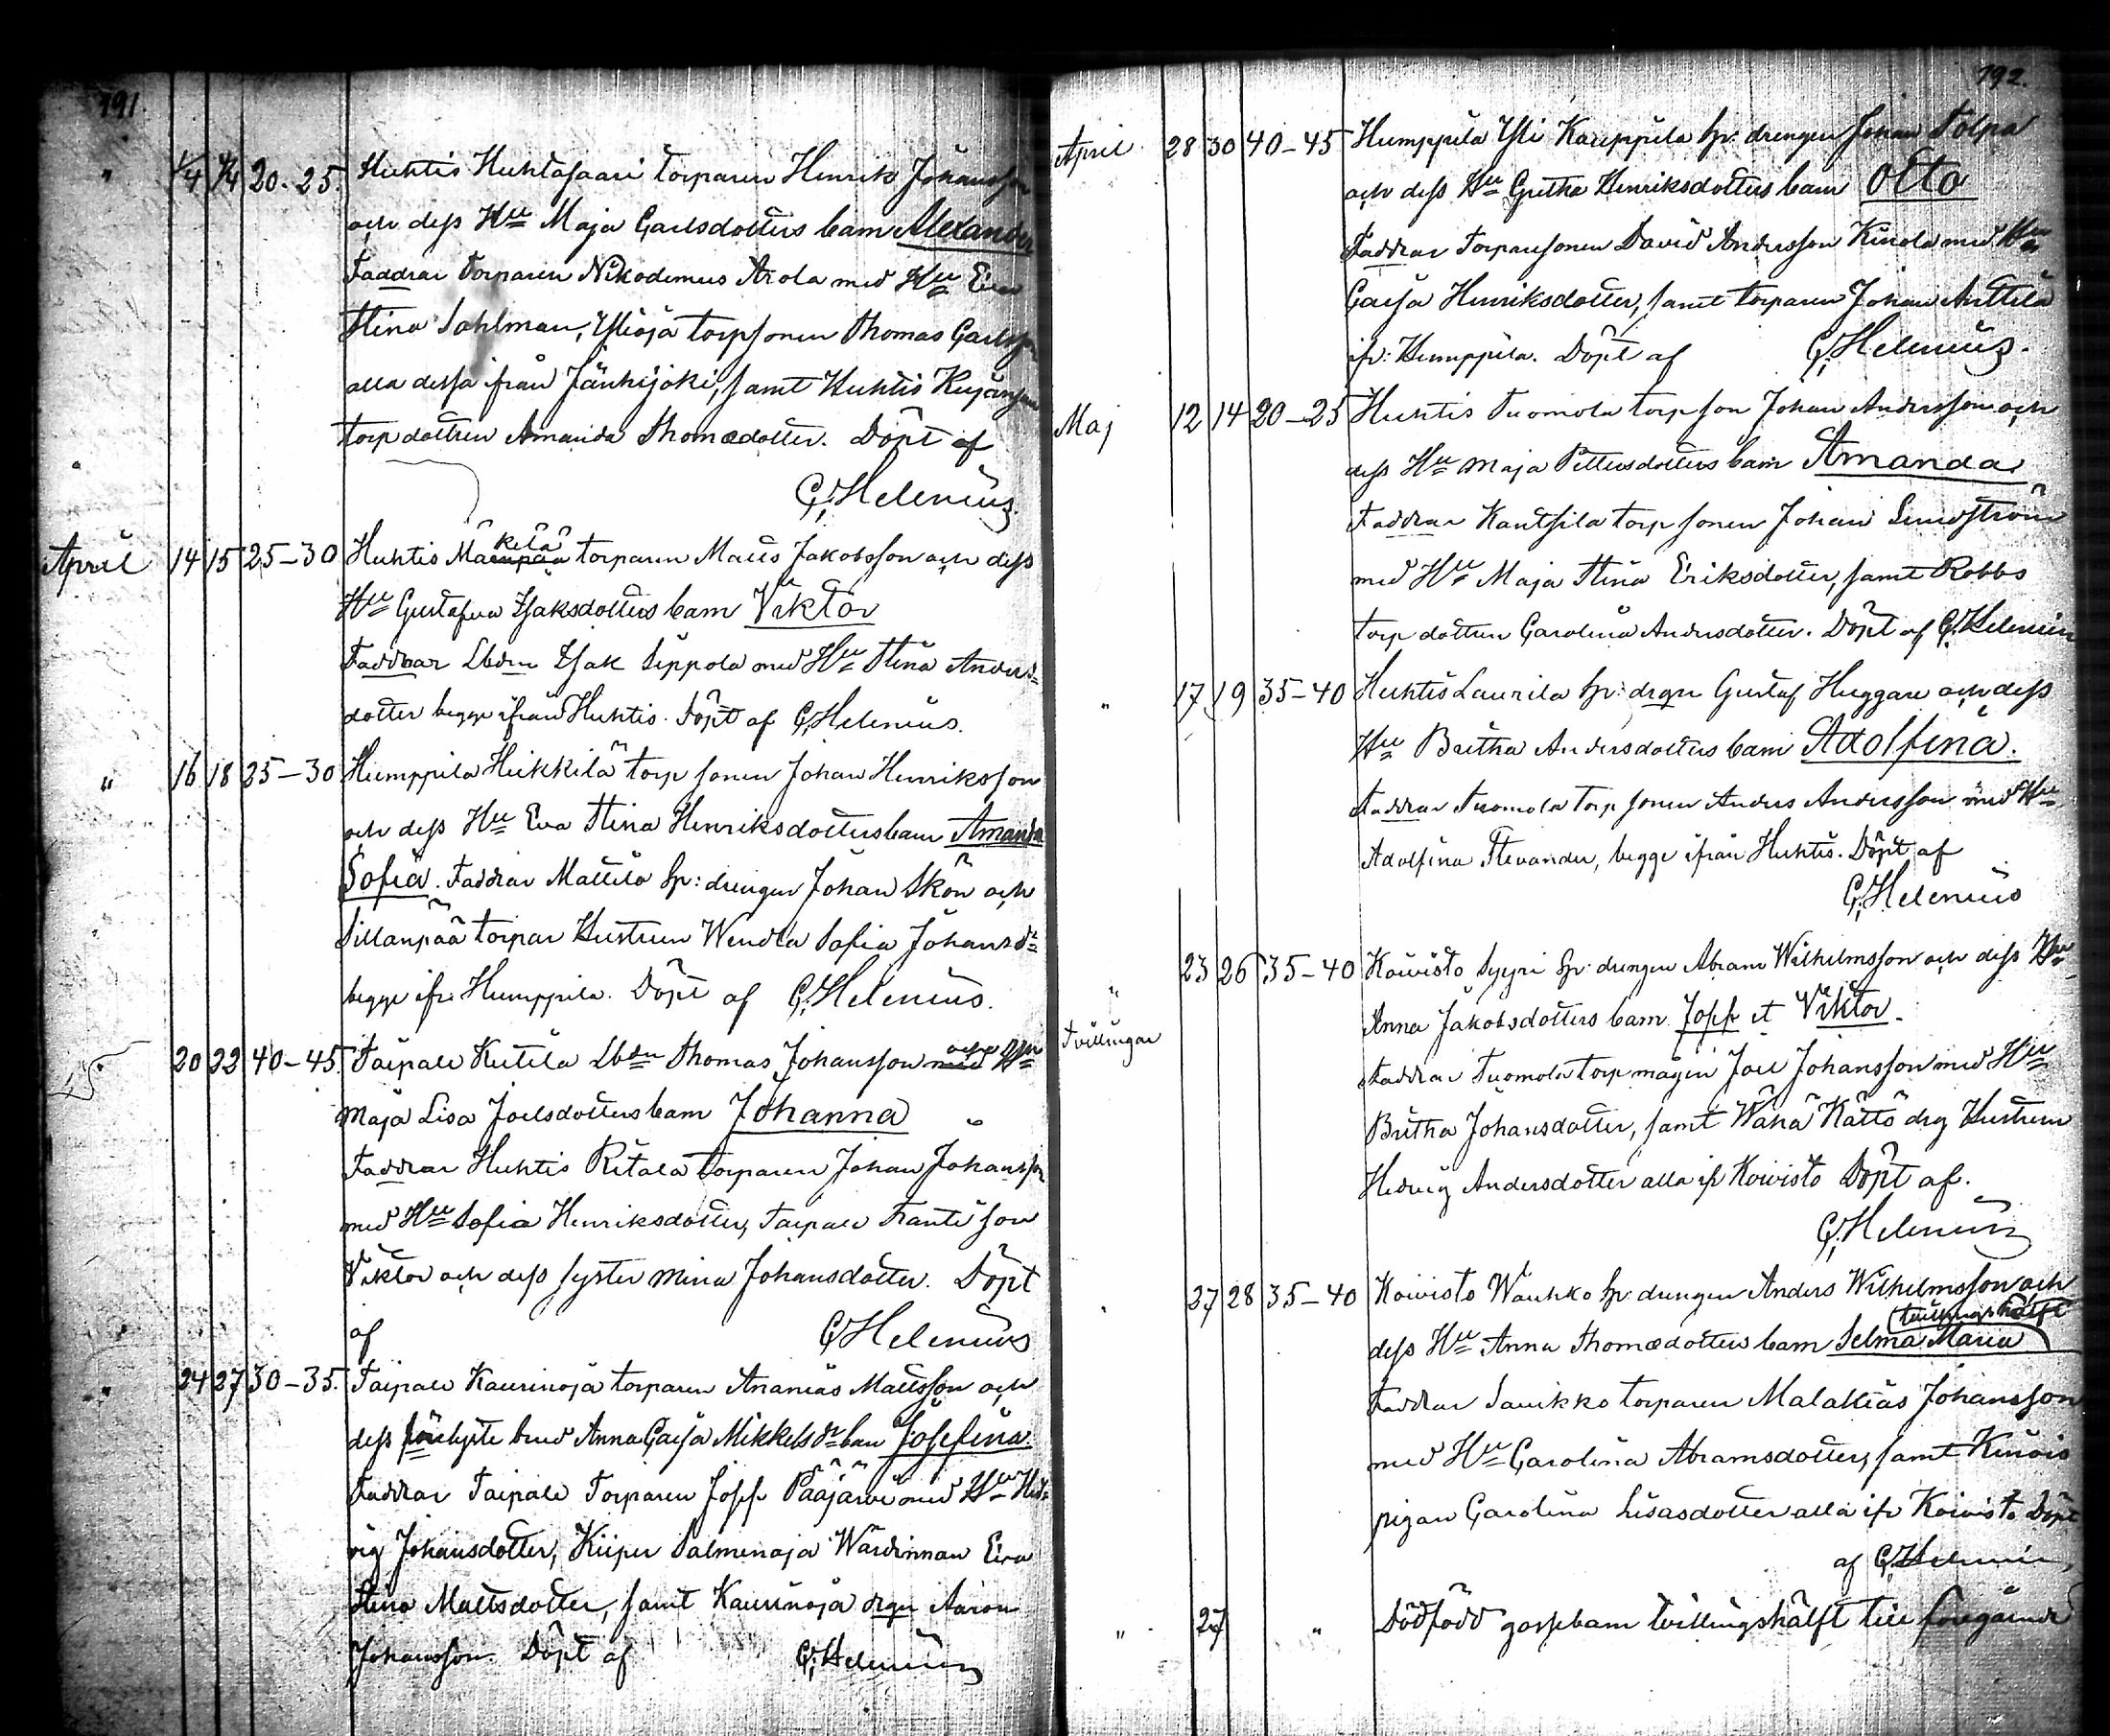 191.
" 1/4 4/4 20-25. Huhtis Huhtasaari torparen Henrik Johansson
och dess Hu Maja Carlsdotters barn Alexander
Faddrar torparen Nikodemus Arola med Hu Eva
Stina Sahlman, Ylioja torpsonen Thomas Carlsson
alla dessa ifrån Jänhijoki, samt Huhtis Kujanpää
torpdottren Amanda Thomædotter. Döpt af
C. Helenius.
April 14 15 25-30 Huhtis Mäenpää kelä torparen Matts Jakobsson och dess
Hu Gustafva Isaksdotters barn Viktor
Faddrar Lbdn Isak Seppola med Hu Stina Anders=
dotter begge ifrån Huhtis. Döpt af C. Helenius.
" 16 18 25-30 Humppila Heikkilä torpsonen Johan Henriksson
och dess Hu Eva Stina Henriksdotters barn Amanda
Sofia. Faddrar Mattila sp: drengen Johan Skön och
Sillanpää torpar Hustrun Wendla Sofia Johansdr
begge ifr. Humppila. Döpt af C. Helenius.
20 22 40-45. Taipale Kutila Lbdn Thomas Johansson med och Hu
Maja Lisa Joelsdotters barn Johanna
Faddrar Huhtis Ritala torparen Johan Johansson
med Hu Sofia Henriksdotter, Taipale Frantti son
Viktor och dess syster Mina Johansdotter. Döpt
af C. Helenius
" 24 27 30-35. Taipale Kaurinoja torparen Ananias Mattsson och
dess brud Anna Cajsa Mikkelsdr barn Josefina.
Faddrar Taipale Torparen Josef Pääjärvi med Hu Hed=
vig Johansdotter, Kiiper Salmenoja Wärdinnan Eva
Stina Mattsdotter, samt Kaurinoja drgn Aaron
Johansson. Döpt af C. Helenius
192.
April 28 30 40-45 Humppila Yli Kauppila sp: drengen Johan Tolpa
och dess Hu Gretha Henriksdotters barn Otto
Faddrar Torparsonen David Andersson Kirola med Hu
Cajsa Henriksdotter, samt torparen Johan Anttila
ifr: Humppila. Döpt af C. Helenius.
Maj 12 14 20-25 Huhtis Tuomola torpson Johan Andersson och
dess Hu Maja Pettersdotters barn Amanda
Faddrar Kantsila torpsonen Johan Lindström
med Hu Maja Stina Eriksdotter, samt Robbs
torpdottren Carolina Andersdotter. Döpt af C. Helenius
" 17 19 35-40 Huhtis Laurila sp: drgn Gustaf Huggare och dess
Hu Britha Andersdotters barn Adolfina.
Faddrar Tuomola torpsonen Anders Andersson med Hu
Adolfina Stevander, begge ifrån Huhtis. Döpt af
C. Helenius
" 23 26 35-40 Koivisto Syyri sp: drengen Abram Wilhelmsson och dess Hu
Tvillingar
Anna Jakobsdotters barn Josef et Viktor.
Faddrar Tuomola torpmågen Joel Johansson med Hu
Britha Johansdotter, samt Wähä Kättö drg Hustrun
Hedvig Andersdotter alla ifr Koivisto Döpt af.
C. Helenius
27 28 35-40 Koivisto Wauhko sp: drengen Anders Wilhelmsson och
(tvillingshälft
dess Hu Anna Thomædotters barn Selma Maria
Faddrar Savikko torparen Malakias Johansson
med Hu Carolina Abramsdotter, samt Kinois
pigan Carolina Lisasdotter alla ifr Koivisto Döpt
af C. Helenius,
" 27 " Dödfödd gossebarn tvillingshälft till föregående